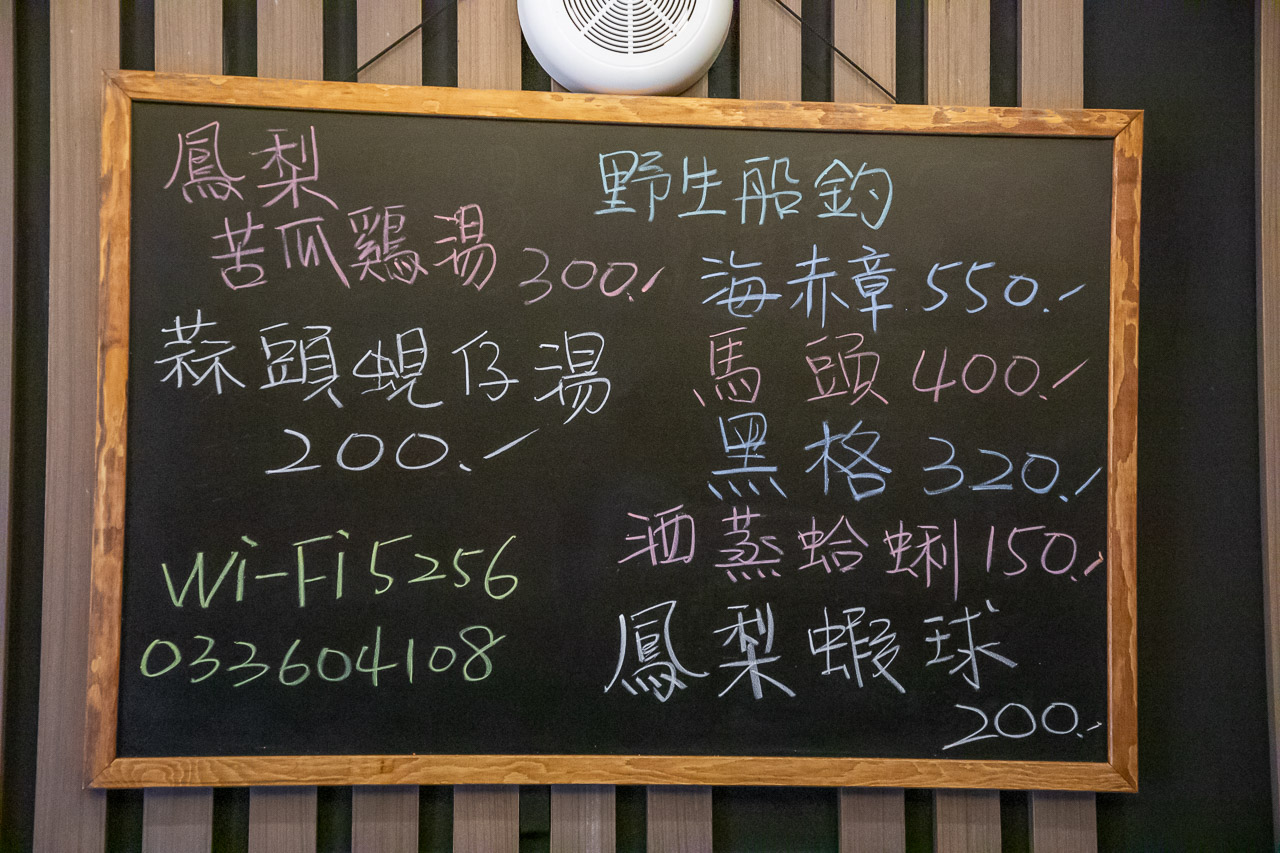 鳳梨
苦瓜鷄湯 300.-
蒜頭蜆仔湯
200.-
Wi-Fi 5256
033604108
野生船釣
海赤章 550.-
馬頭 400.-
黑格 320.-
酒蒸蛤蜊 150.-
鳳梨蝦球
200.-